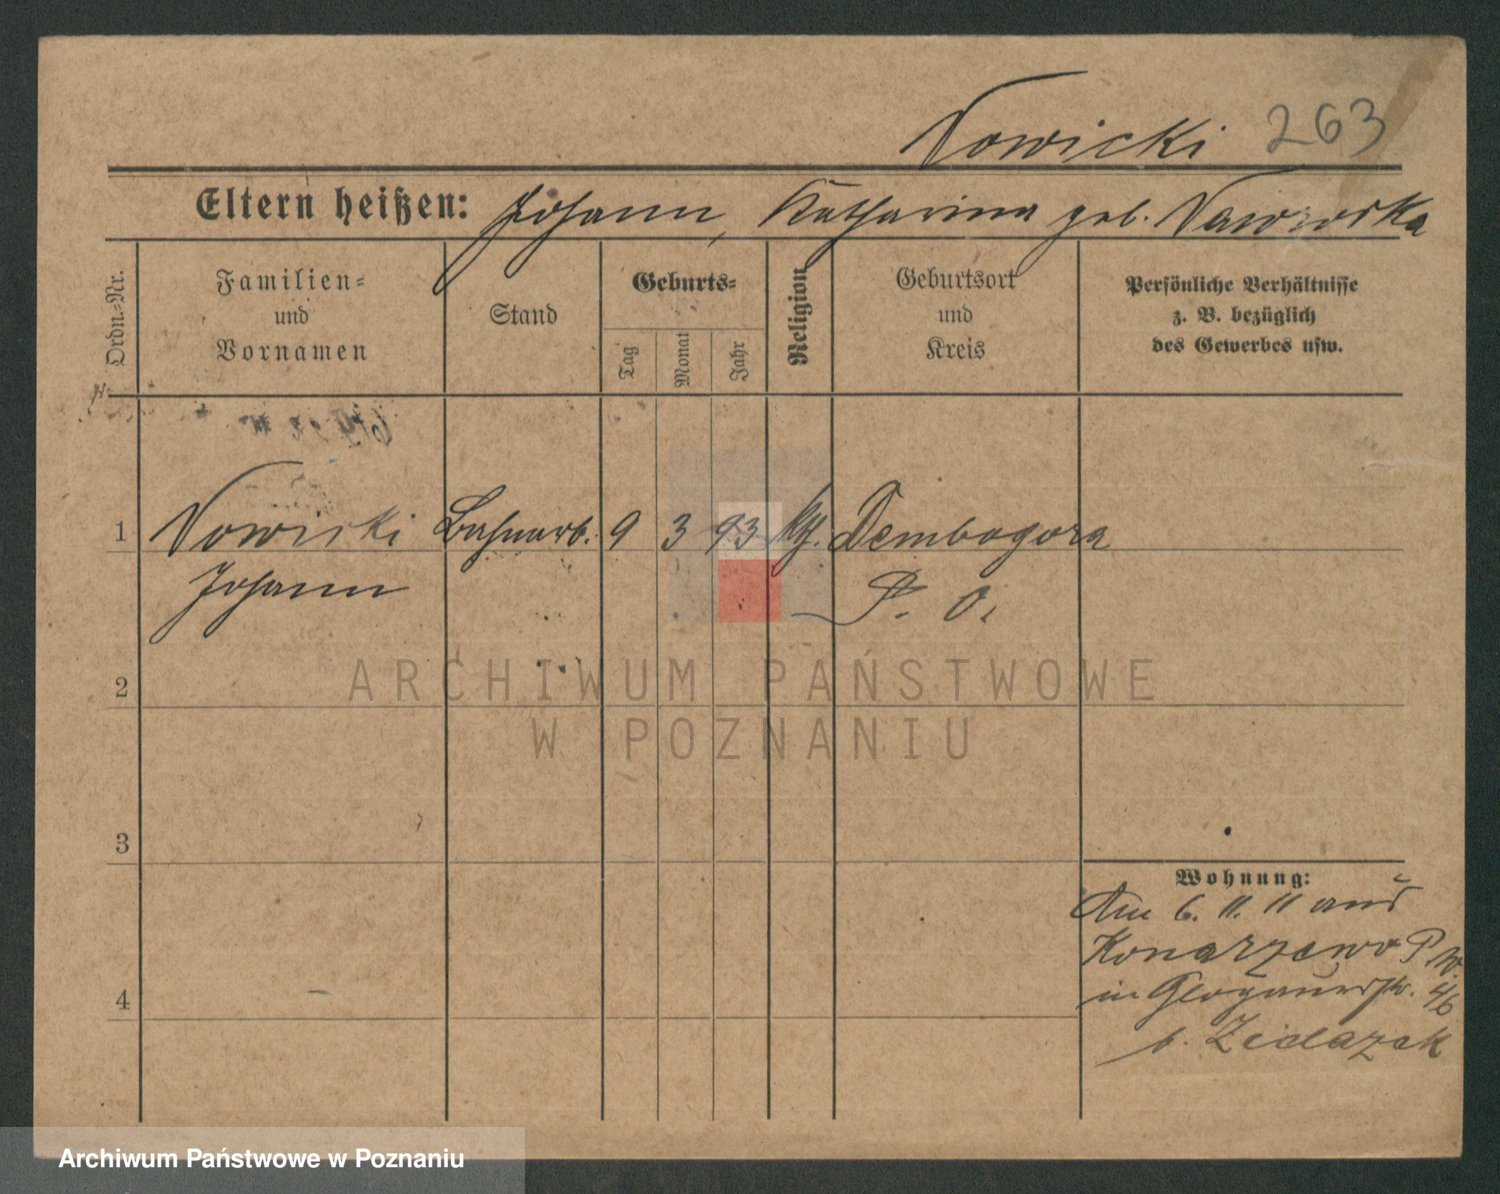 Nowicki 263
Eltern heißen: Johann, Katharina geb. Nawrorska
Ordn.-Nr.
Familien-
und
Vornamen
Stand
Geburts-
Tag
Monat
Jahr
Religion
Geburtsort
und
Kreis
Persönliche Verhältnisse
z. B. bezüglich
des Gewerbes usw.
1 Nowicki Bahnarb. 9 3 93 kth. Dembogora
Johann P. O.
2
ARCHIWUM PAŃSTWOWE
W POZNANIU
3
4
Wohnung:
Am 6. 11. 11 aus
Konarzewo P. W.
in Glogauerstr. 
b.
Archiwum Państwowe w Poznaniu